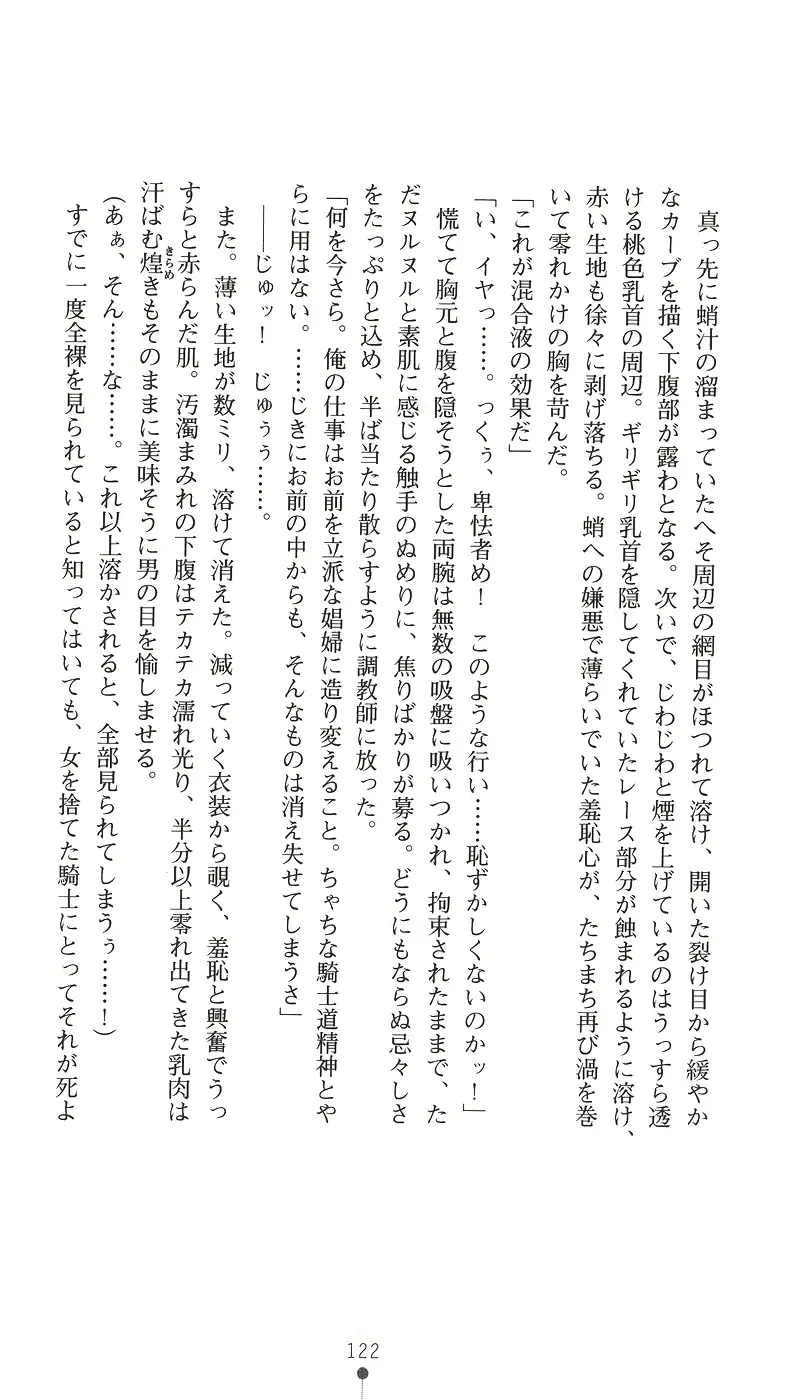 真っ先に蛸汁の溜まっていたへそ周辺の網目がほつれて溶け、開いた裂け目から緩やか
なカーブを描く下腹部が露わとなる。次いで、じわじわと煙を上げているのはうっすら透
ける桃色乳首の周辺。ギリギリ乳首を隠してくれていたレース部分が蝕まれるように溶け、
赤い生地も徐々に剥げ落ちる。蛸への嫌悪で薄らいでいた羞恥心が、たちまち再び渦を巻
いて零れかけの胸を苛んだ。
「これが混合液の効果だ」
「い、イヤっ……。っくぅ、卑怯者め！　このような行い……恥ずかしくないのかッ！」
慌てて胸元と腹を隠そうとした両腕は無数の吸盤に吸いつかれ、拘束されたままで、た
だヌルヌルと素肌に感じる触手のぬめりに、焦りばかりが募る。どうにもならぬ忌々しさ
をたっぷりと込め、半ば当たり散らすように調教師に放った。
「何を今さら。俺の仕事はお前を立派な娼婦に造り変えること。ちゃちな騎士道精神とや
らに用はない。……じきにお前の中からも、そんなものは消え失せてしまうさ」
――じゅッ！　じゅぅぅ……。
また。薄い生地が数ミリ、溶けて消えた。減っていく衣装から覗く、羞恥と興奮でうっ
すらと赤らんだ肌。汚濁まみれの下腹はテカテカ濡れ光り、半分以上零れ出てきた乳肉は
汗ばむ煌きらめきもそのままに美味そうに男の目を愉しませる。
（あぁ、そん……な……。これ以上溶かされると、全部見られてしまうぅ……！）
すでに一度全裸を見られていると知ってはいても、女を捨てた騎士にとってそれが死よ
122